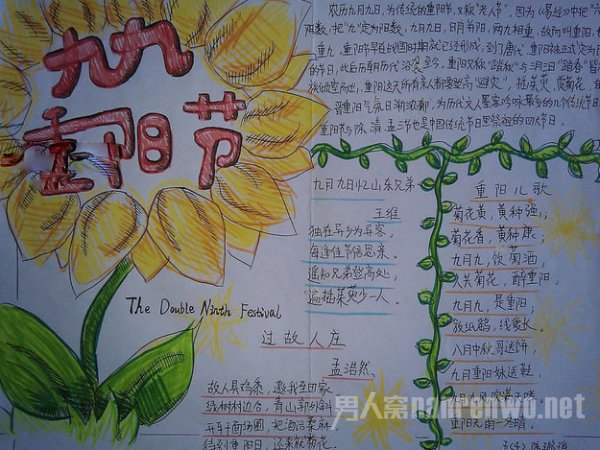 九九
重阳节
农历九月九日，为传统的重阳节，又称"老人节"。因为《易经》中把"六
两数，把"九"定为阳数，九月九日，日月并阳，两九相重，故而叫重阳，
重九。重阳节早在战国时期就已经形成，到了唐代，重阳被正式定为
的节日，此后历朝历代沿袭至今。重阳又称"踏秋"与
重阳这天所有亲人都要登高"避灾"，插茱萸，赏菊花，
重阳节与除、清、盂三节也是中国传统节日里祭祖的四大节日。
九月九日忆山东兄弟
王维
独在异乡为异客，
每逢佳节倍思亲。
遥知兄弟登高处，
遍插茱萸少一人。
The Double Ninth Festival
过故人庄
孟浩然
故人具鸡黍，邀我至田家。
绿树村边合，青山郭外斜。
开轩面场圃，把酒话桑麻。
待到重阳日，还来就菊花。
重阳儿歌
菊花黄，黄种强；
菊花香，黄种康；
九月九，饮菊酒，
人共菊花，醉重阳。
九月九，是重阳；
放纸鹞，线爱长。
八月中秋哥送饼，
九月重阳妹送鞋。
重阳无雨一冬晴。
男人窝nanrenwo.net